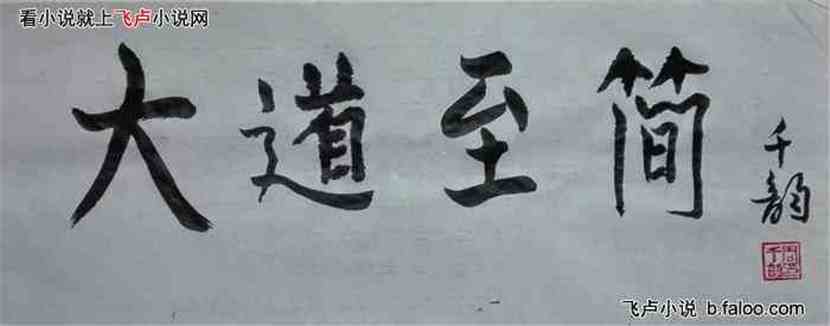 看小说就上飞卢小说网
大道至简
千韵
飞卢小说 b.faloo.com